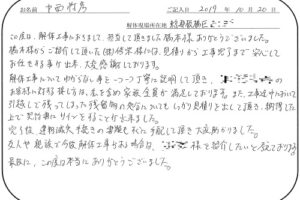 お名前 中西 ご記入日 2019年10月20日
解体現場所在地
この度は、解体工事におきまして、担当して頂きました橋本様、ありがとうございました。
橋本様からご紹介して頂いた(株) 様には、見積りから工事完了まで安心して
お任せする事が出来、大変感謝しております。
解体工事についてわからない事を一つ一つ丁寧に説明して頂き、
お客様に対する様は、私を含め家族全員が満足しております。また、工事途中において
引越しで残ってしまった残留物の処分についてもしっかり見積りを出して頂き、納得した
上で契約書にサインをすることが出来ました。
完了後、建物滅失手続きの書類もすぐに手配して頂き大変助かりました。
友人や親族で今後解体工事をする場合は、 様を紹介したいと思っております。
最後に、この度は本当にありがとうございました。